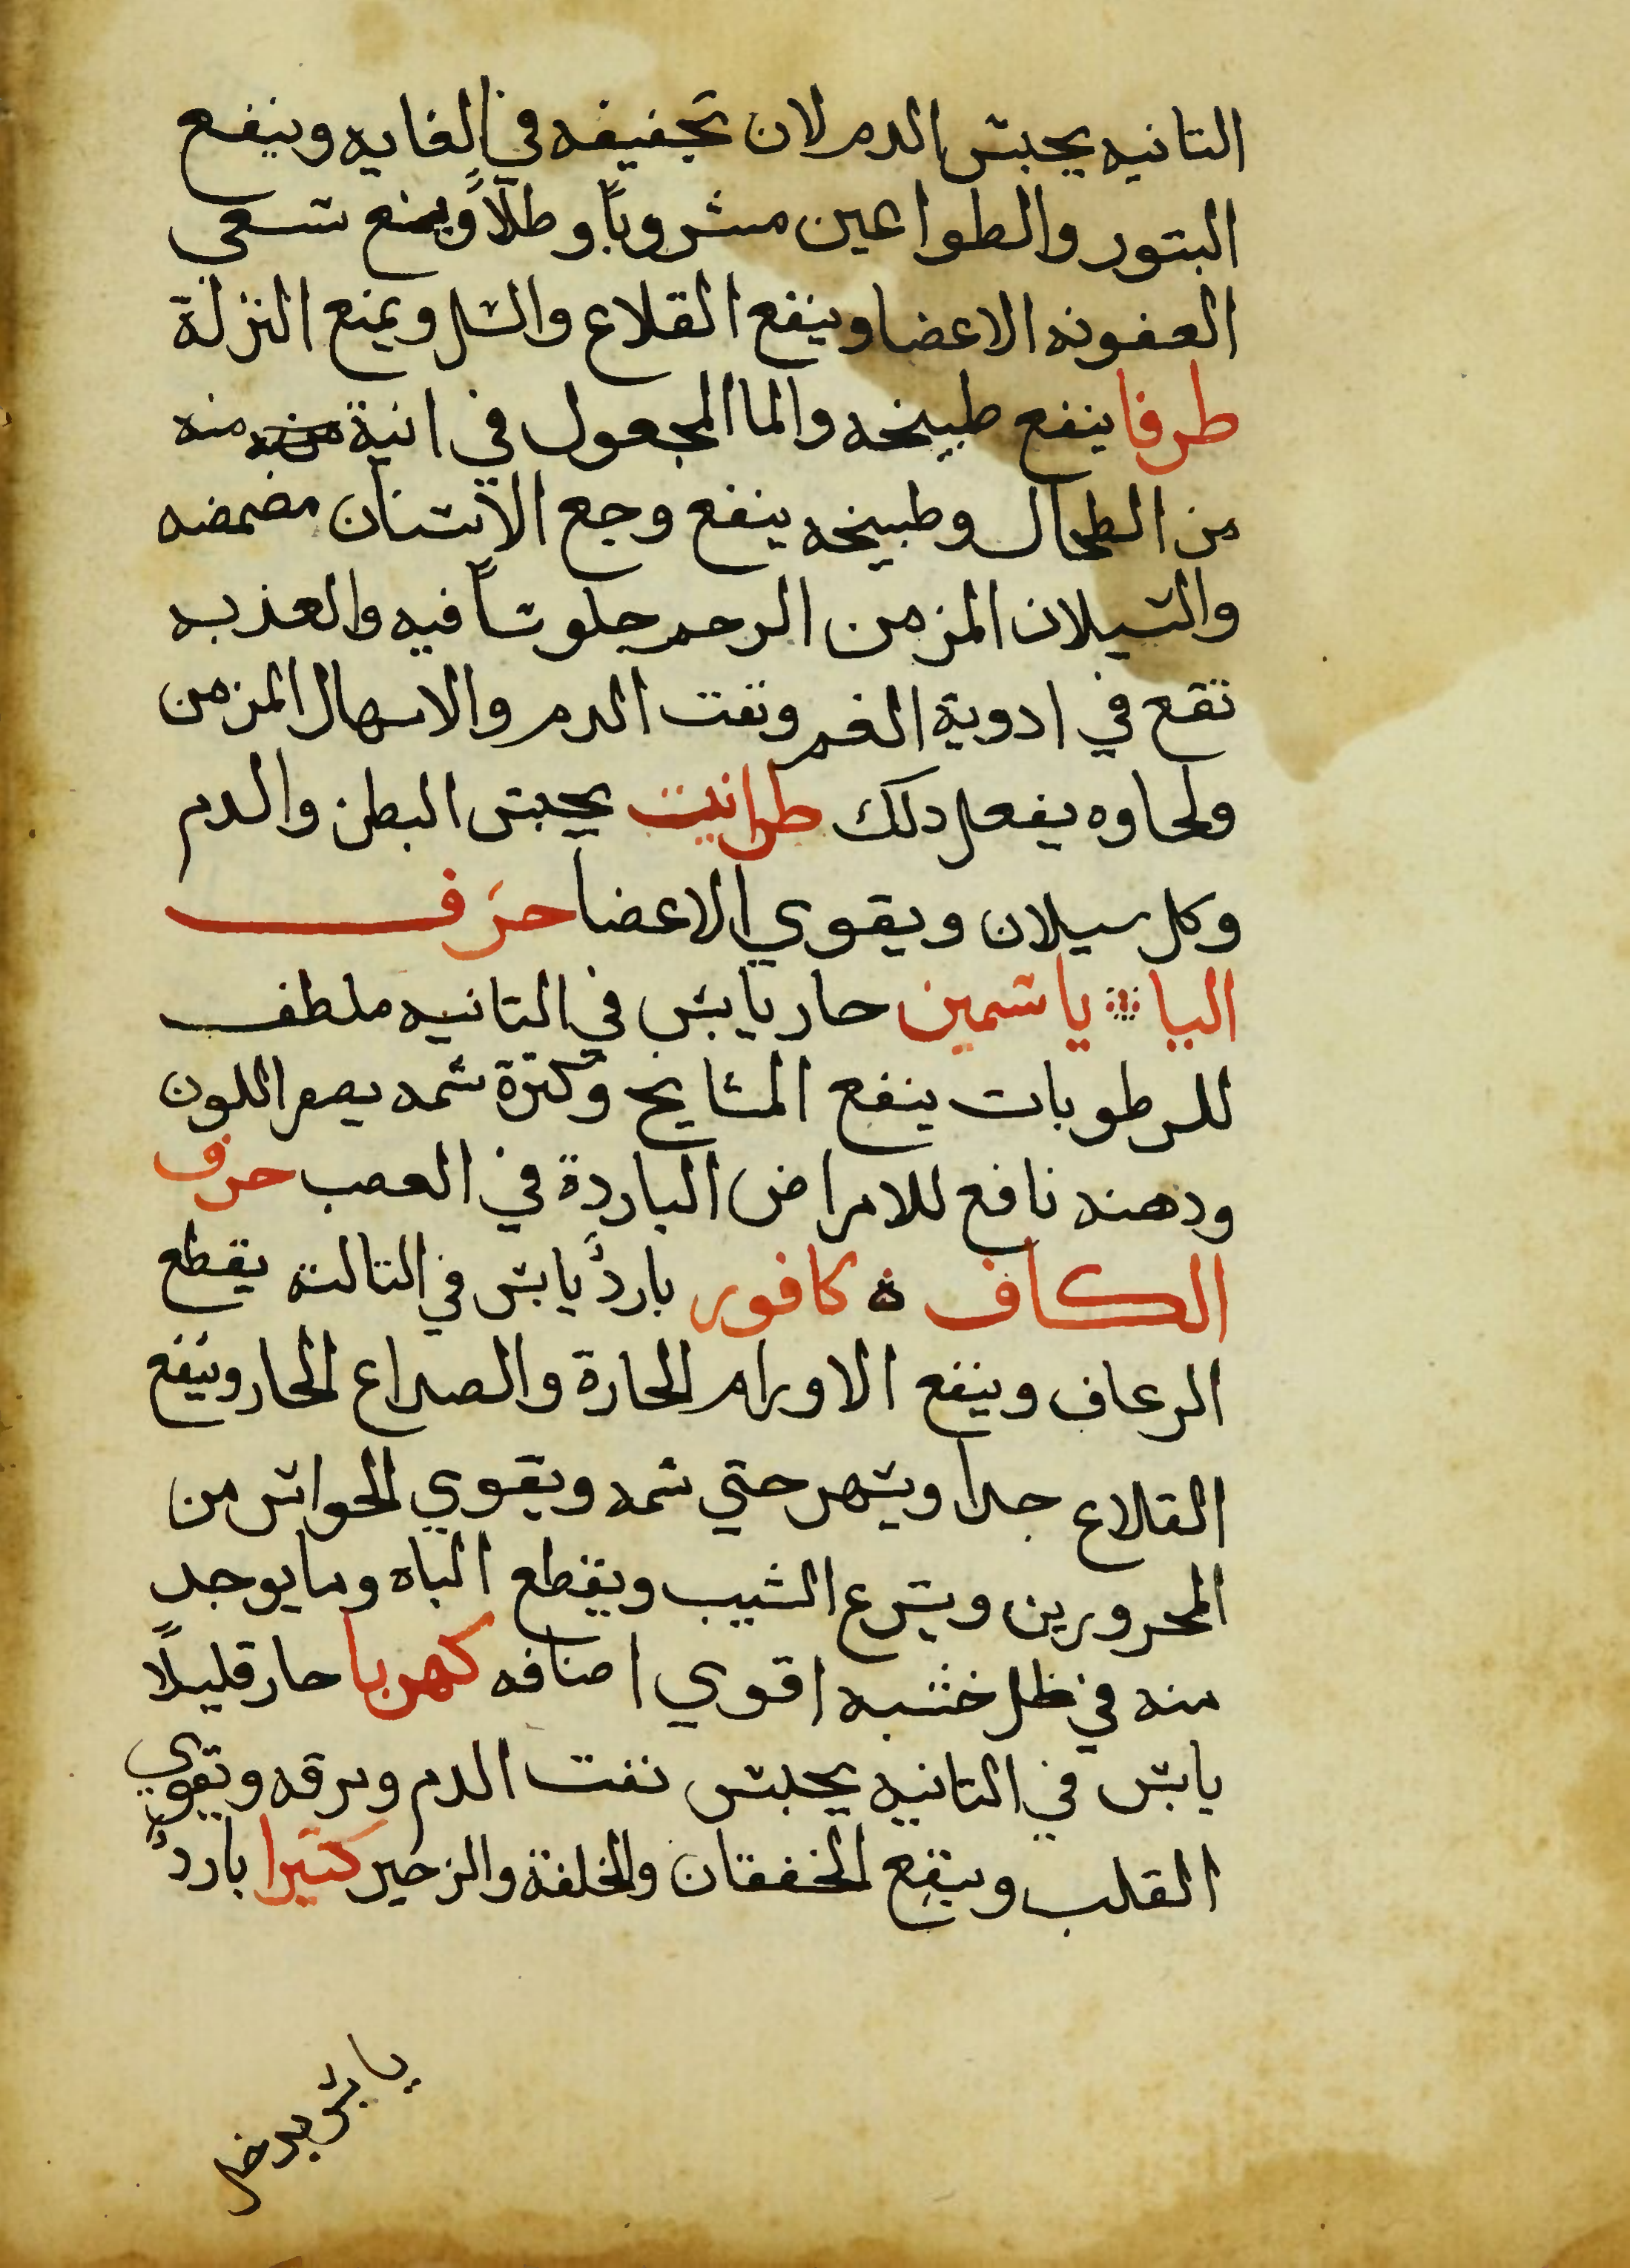 التانيه يحبس الدم لان تجفيفه في الغايه وينفع
البتور والطواعين مشروباً وطلاً ويمنع سعي
العفونه الاعضا وينفع القلاع والسل ويمنع النزلة
طرفا ينفع طبيخه والما المجعول في انية منه
من الطحال وطبيخه ينفع وجع الاسنان مضمضه
والسيلان المزمن الرحم جلوساً فيه والعذبه
تقع في ادوية الفم ونفت الدم والاسهال المزمن
ولحاوه يفعل دلك طراتيت يحبس البطن والدم
وكل سيلان ويقوي الاعضا حرف
اليا ياسمين حار يابس في التانيه ملطف
للرطوبات ينفع المشايخ وكترة شمه يصفر اللون
ودهنه نافع للامراض الباردة في العصب حرف
الكاف ه كافور بارد يابس في التالتة يقطع
الرعاف وينفع الاورام الحارة والصداع الحار وينفع
القلاع جدا ويسهر حتي شمه ويقوي الحواس من
المحرورين ويسرع الشيب ويقطع الباه وما يوجد
منه في ظل خشبه اقوي اصنافه كهربا حار قليلاً
يابس في التانيه يحبس نفت الدم ونزفه ويقوي
القلب وينفع الخفقان والخلفة والزحير كتيرا بارد
يابس يدخل